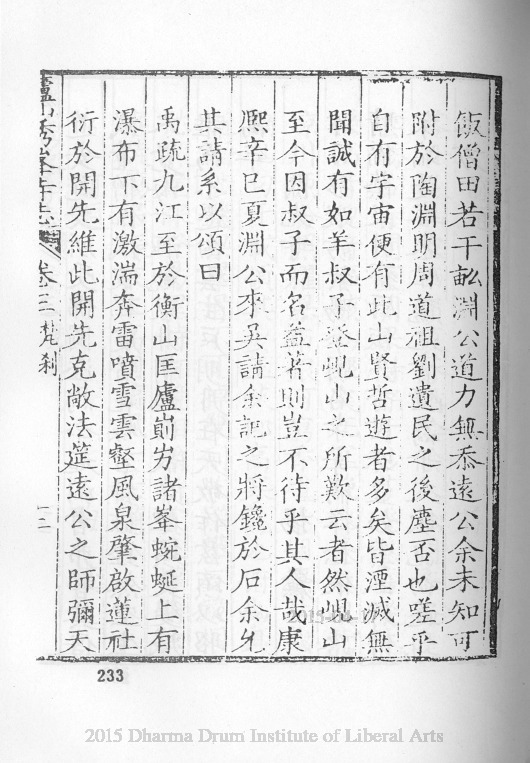 飯僧田若干畝淵公道力無忝遠公余未知可
附於陶淵明周道祖劉遺民之後塵否也嗟乎
自有宇宙便有此山賢哲遊者多矣皆湮滅無
聞誠有如羊叔子登峴山之所歎云者然峴山
至今因叔子而名益著則豈不待乎其人哉康
熙辛巳夏淵公來吳請余記之將鑱於石余允
其請系以頌曰
禹疏九江至於衡山匡廬崱屴諸峯蜿蜒上有
瀑布下有激湍奔雷噴雪雲壑風泉肇啟蓮社
衍於開先維此開先克敞法筵遠公之師彌天
廬山秀峰寺志
卷三 梵刹
十二
233
2015 Dharma Drum Institute of Liberal Arts